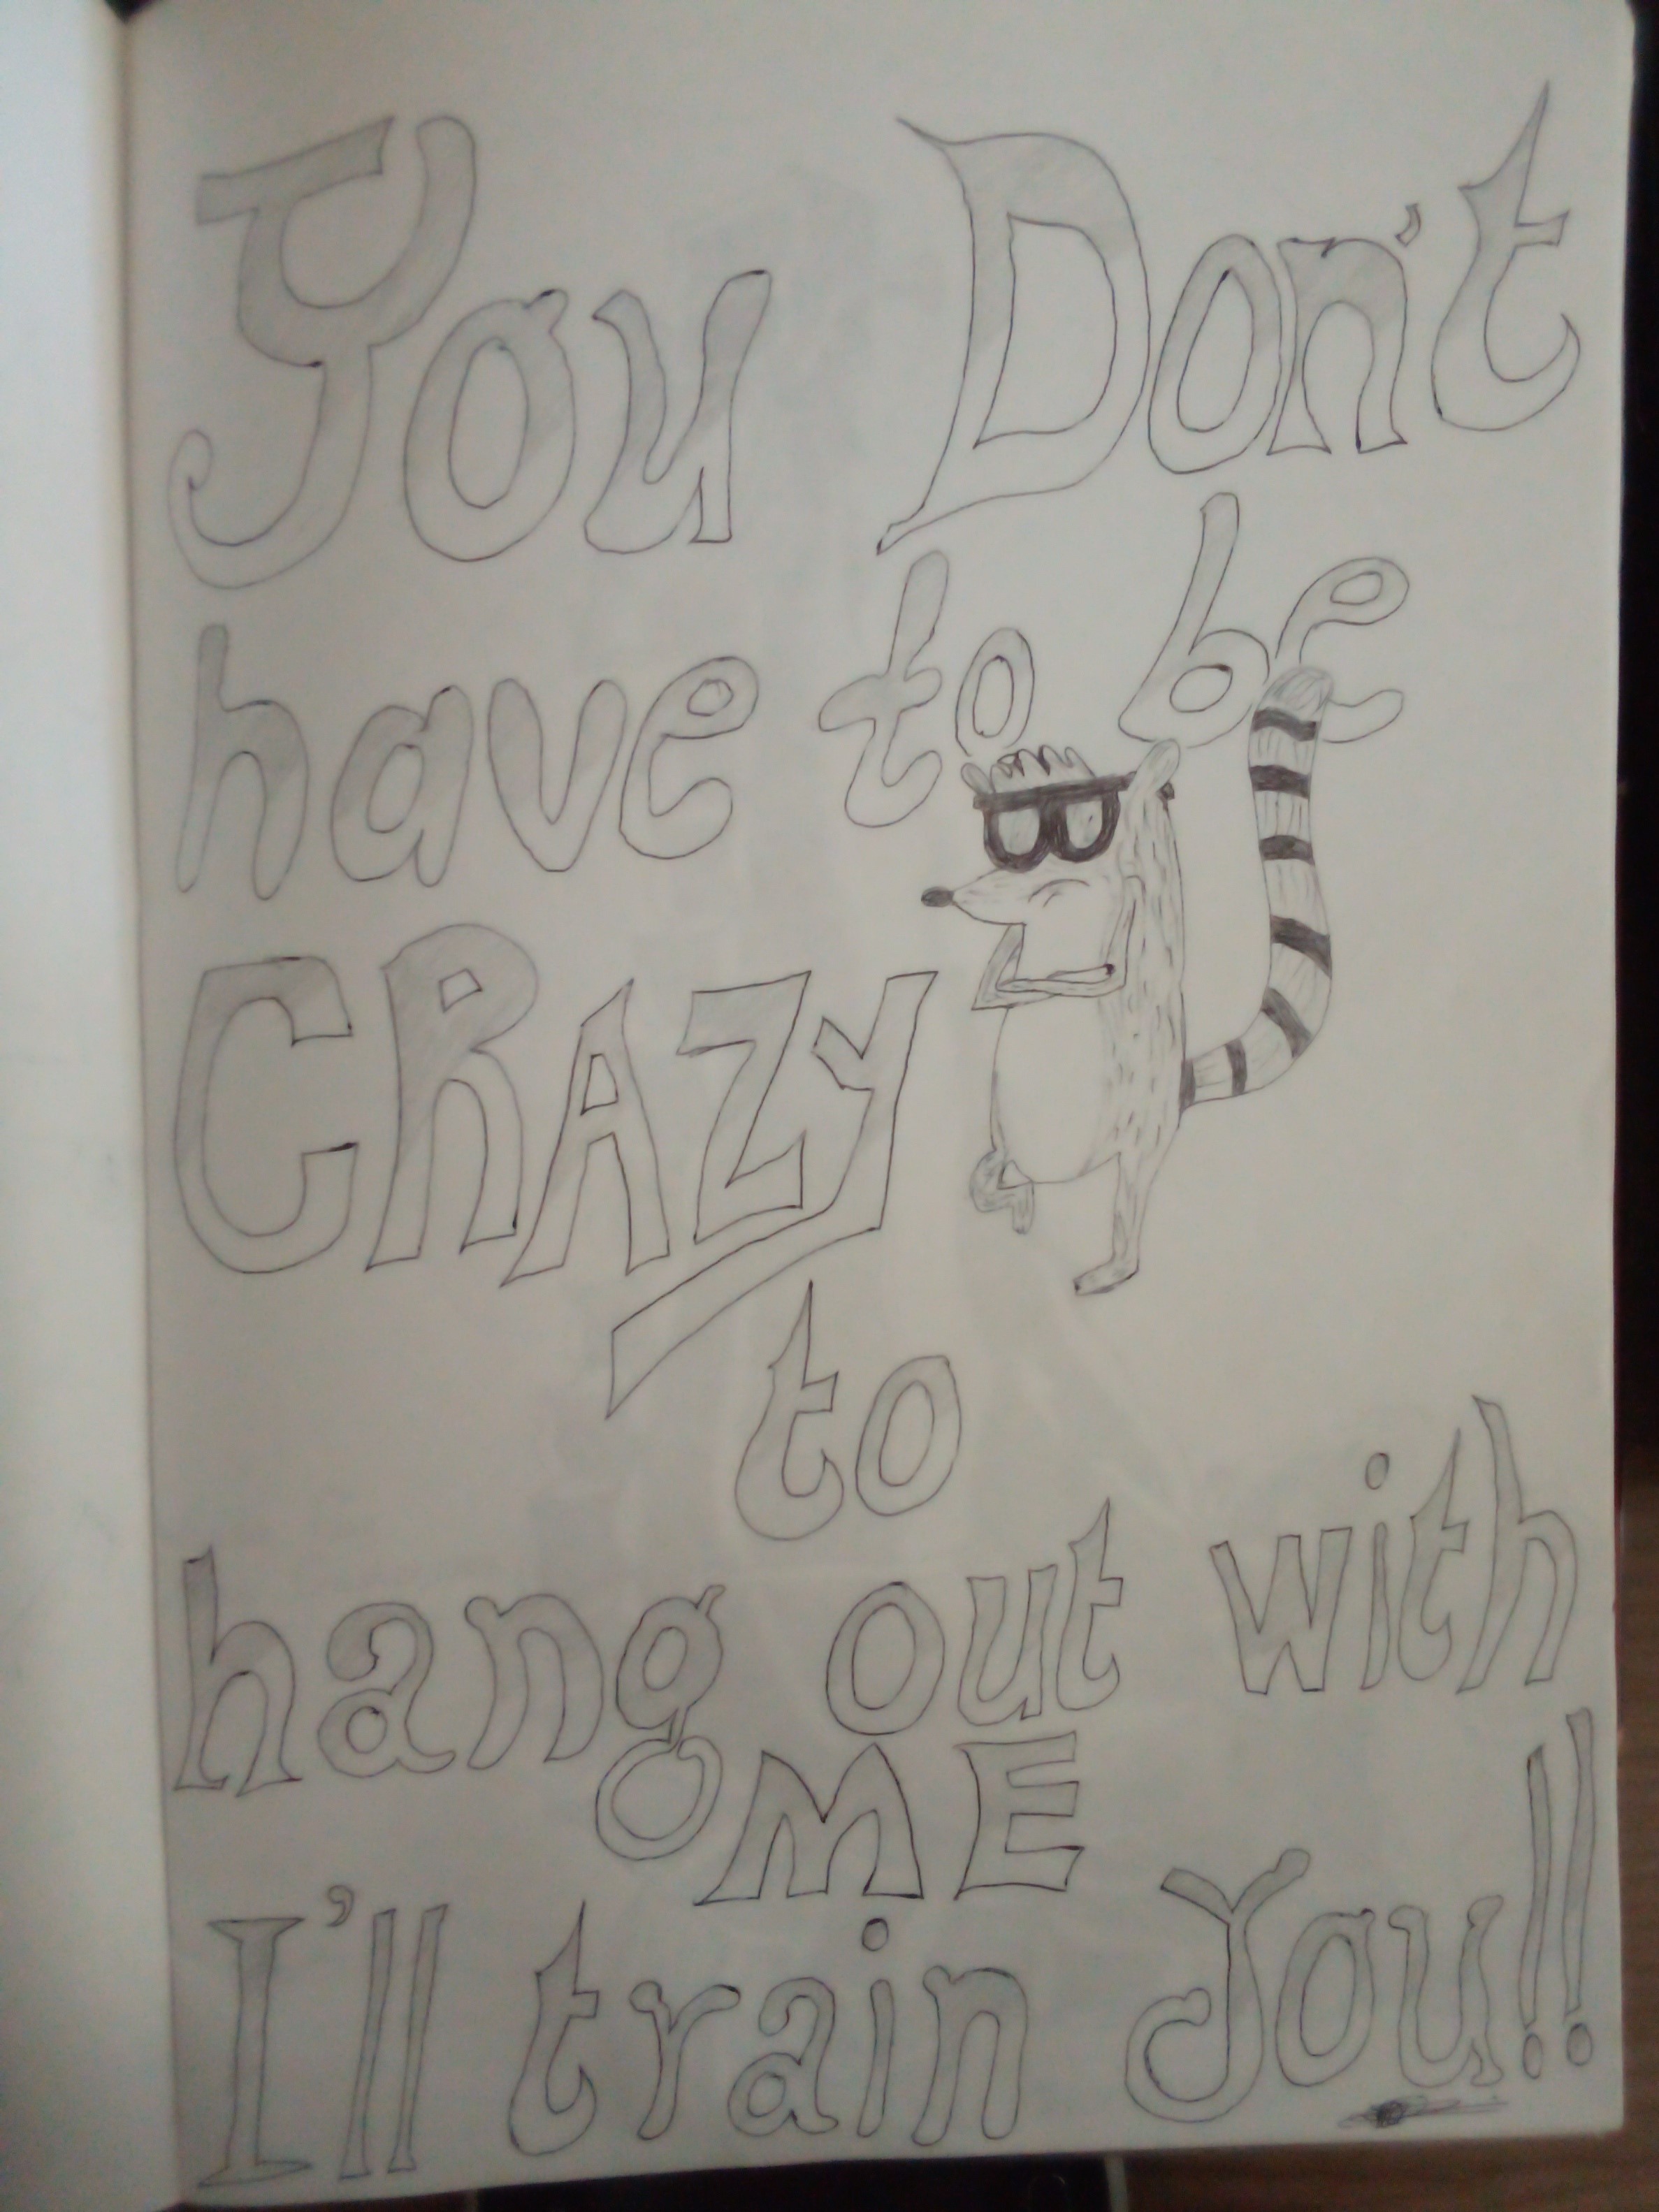 You Don't
have to be
CRAZY
to
hang out with
ME
I'll train You!!